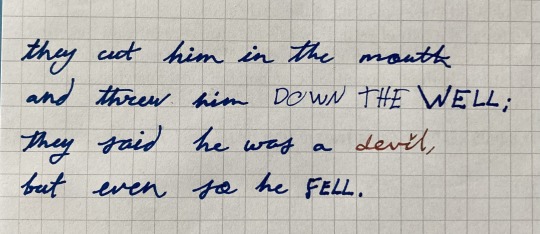 they cut him in the mouth
and threw him DOWN THE WELL;
they said he was a devil,
but even so he FELL.